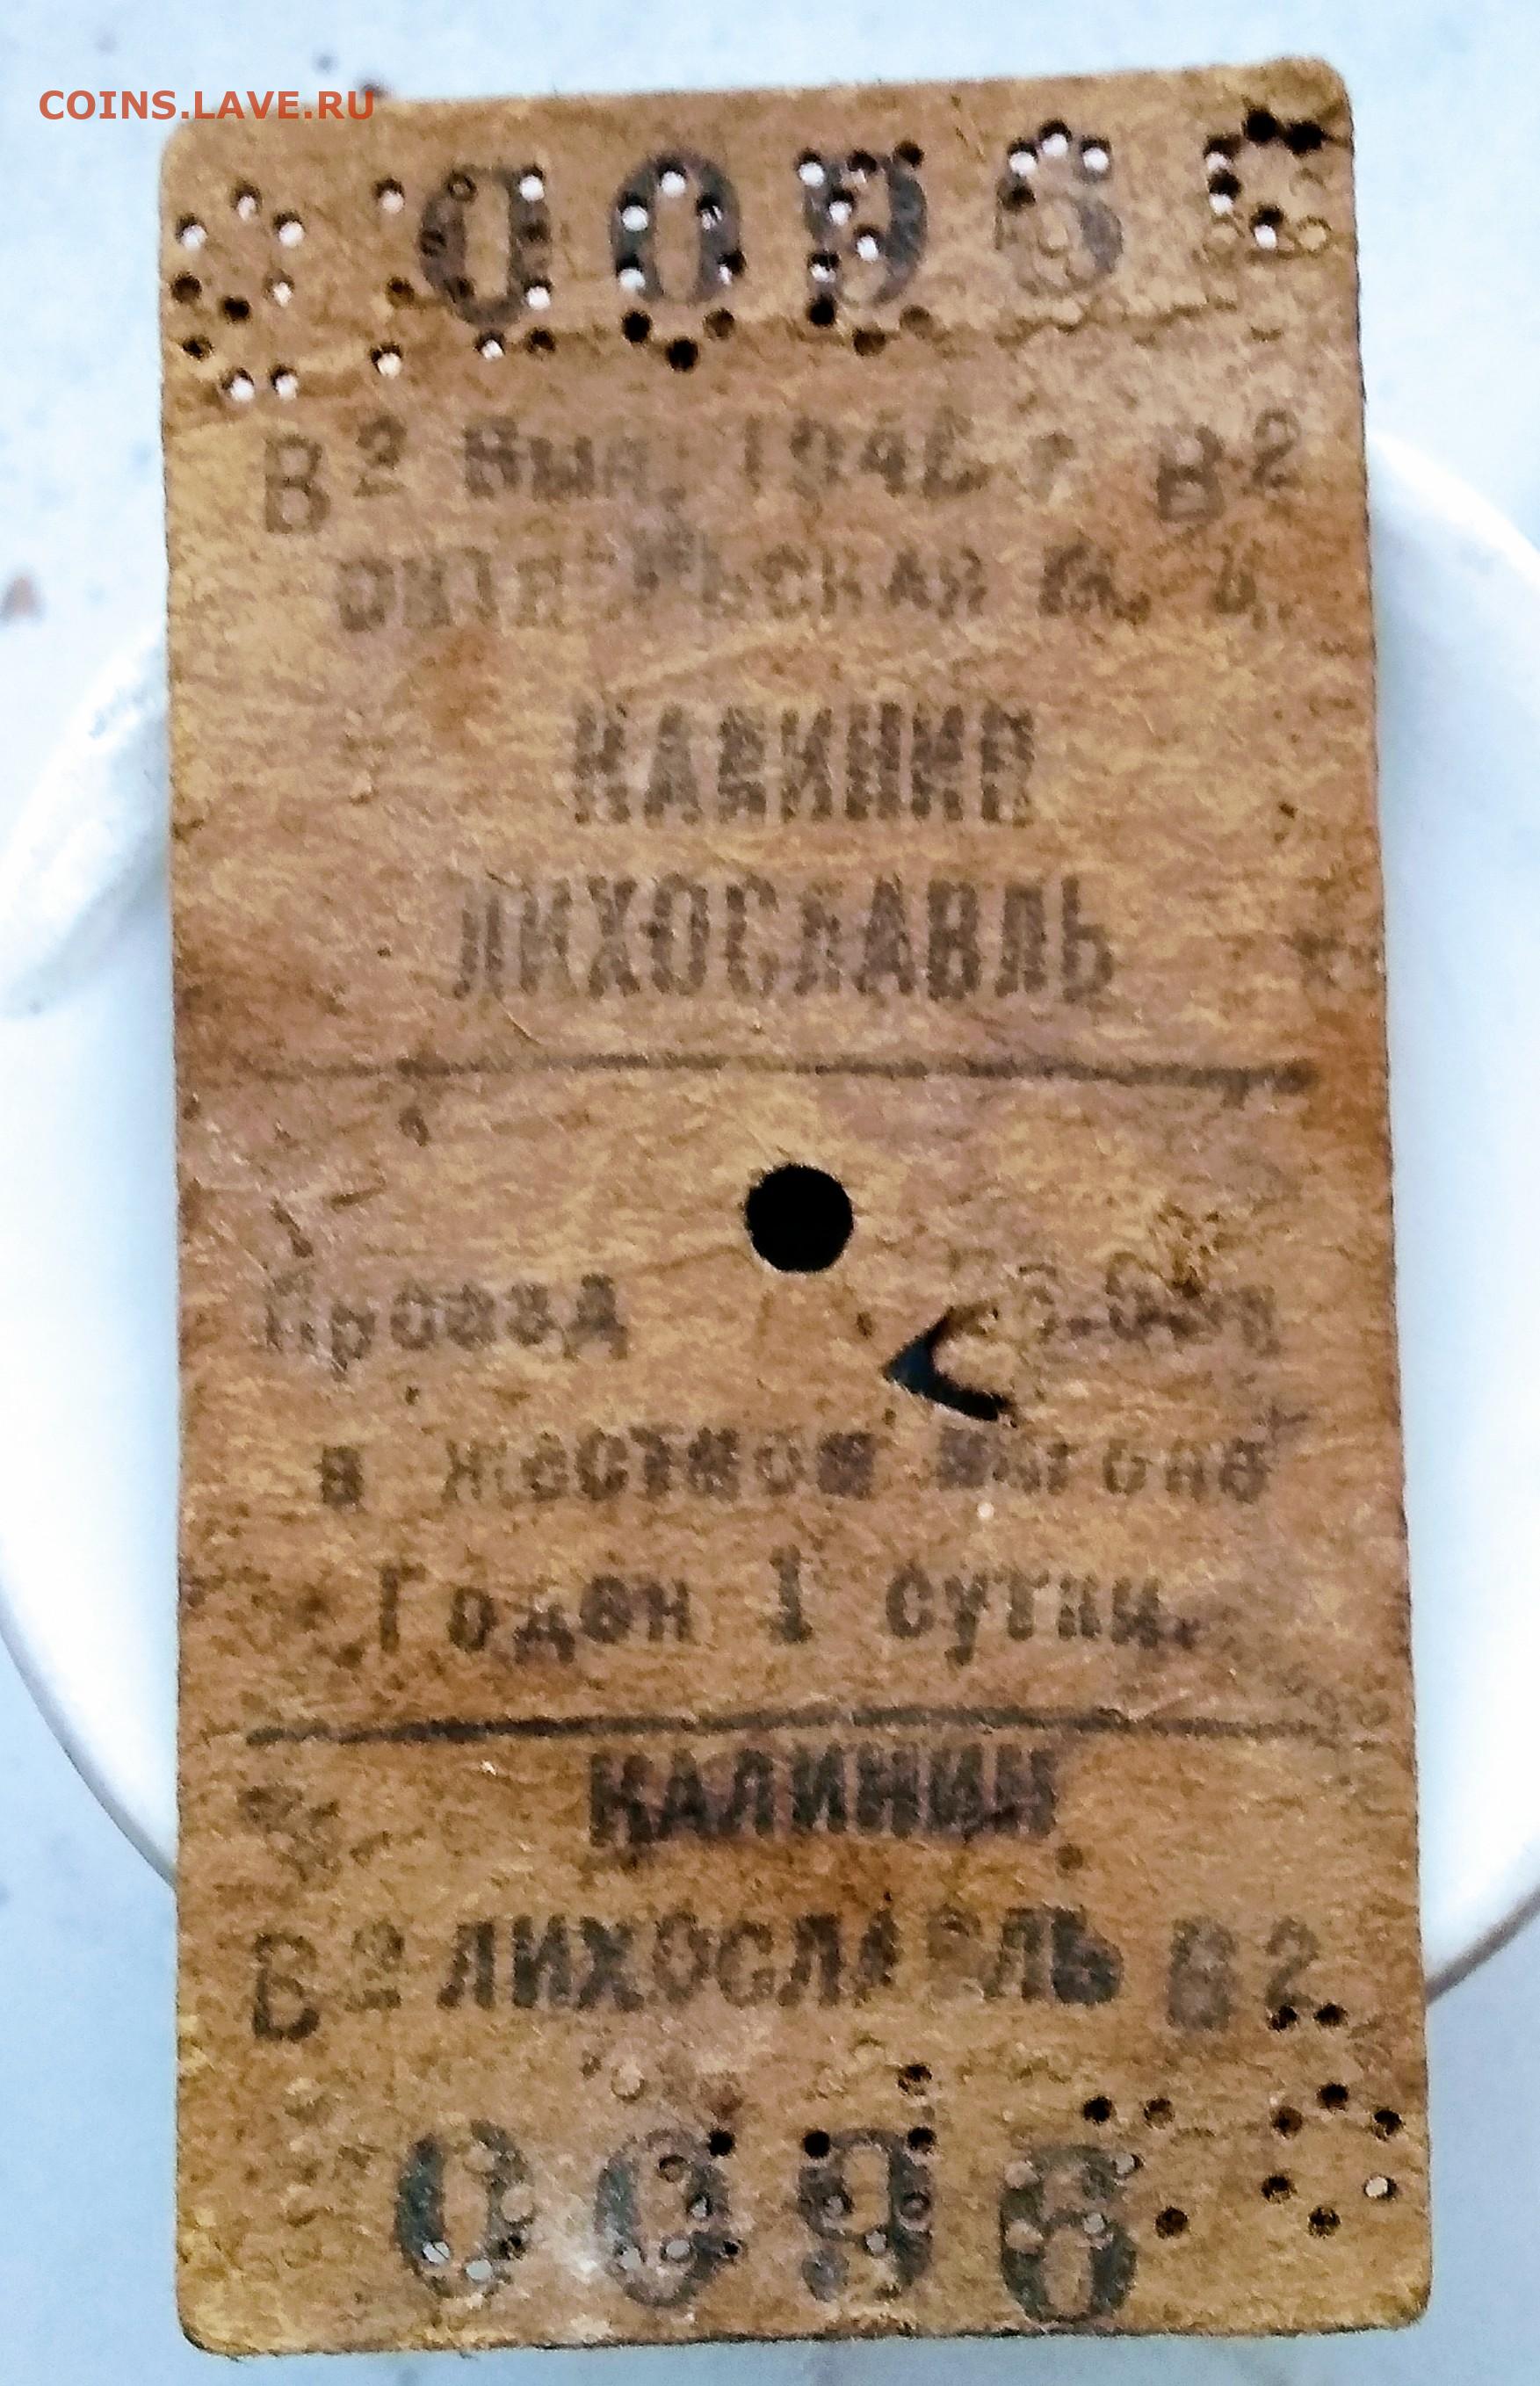 COINS.LAVE.RU
0096
В2 Вып. 1946 г В2
КАЛИНИН
ЛИХОСЛАВЛЬ
Проезд
в жестком вагоне
Годен 1 сутки.
КАЛИНИН
В2 ЛИХОСЛАВЛЬ В2
0096